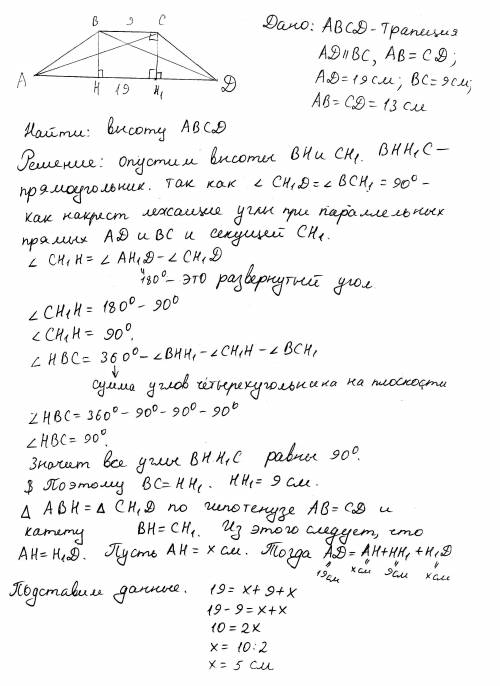 B 9 C
A H 19 H₁ D
Дано: ABCD - трапеция
AD ∥ BC, AB = CD;
AD = 19 см; BC = 9 см;
AB = CD = 13 см
Найти: высоту ABCD
Решение: опустим высоты BH и CH₁. BHH₁C –
прямоугольник. Так как ∠ CH₁D = ∠ BCH₁ = 90° –
как накрест лежащие углы при параллельных
прямых AD и BC и секущей CH₁.
∠ CH₁H = ∠ AH₁D - ∠ CH₁D
180° – это развернутый угол
∠ CH₁H = 180° - 90°
∠ CH₁H = 90°.
∠ HBC = 360° - ∠BHH₁ - ∠CH₁H - ∠BCH₁
↓
сумма углов четырехугольника на плоскости
∠HBC = 360° - 90° - 90° - 90°
∠HBC = 90°.
Значит все углы BHH₁C равны 90°.
Поэтому BC = HH₁. HH₁ = 9 см.
Δ ABH = Δ CH₁D по гипотенузе AB = CD и
катету BH = CH₁. Из этого следует, что
AH = H₁D. Пусть AH = x см. Тогда AD = AH + HH₁ + H₁D
19 см x см 9 см x см
Подставим данные. 19 = x + 9 + x
19 - 9 = x + x
10 = 2x
x = 10 : 2
x = 5 см